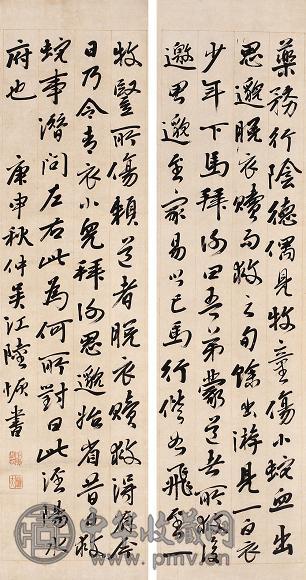 藥務行陰德偶見牧童傷小蛇血出
思邈脫衣贖而救之旬餘出遊見一白衣
少年下馬拜謝曰吾弟蒙道者所救復
邀思邈至家易以己馬行偕如飛至一
牧豎所傷賴道者脫衣贖救得有今
日乃令青衣小兒拜謝思邈始省昔日救
蛇事潛問左右此為何所對曰此涇陽水
府也 庚申秋仲吳江陸恢書